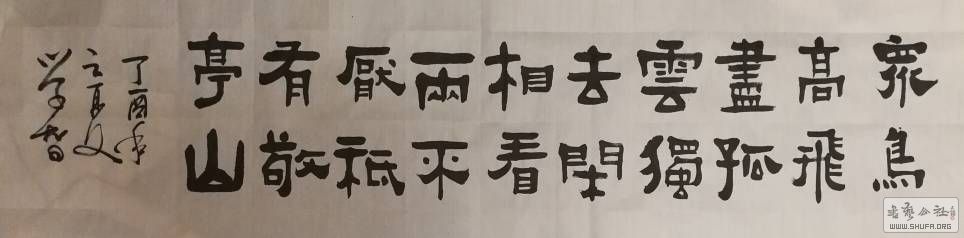 眾鳥
高飛
盡孤
雲獨
去閑
相看
兩不
厭祗
有敬
亭山
丁酉年
之夏
学智
书艺公社
WWW.SHUFA.ORG